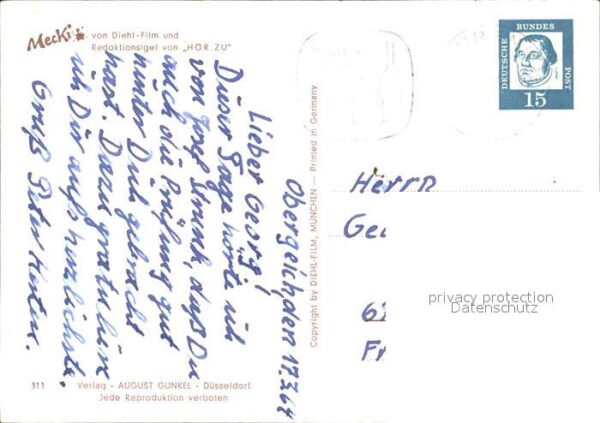 Mecki von Diehl-Film und
Redaktionsigel von „HÖR ZU"
DEUTSCHE BUNDES POST
15
den 17.3.64
Lieber Georg!
Dieser Tage hörte ich
von Strunk, daß Du
auch die Prüfung gut
hinter Dich gebracht
hast. Dazu gratuliere
ich Dir aufs herzlichste.
Gruß Peter
Copyright by DIEHL-FILM, MÜNCHEN — Printed in Germany
Herrn
Geo
Fr
privacy protection
Datenschutz
311 Verlag - AUGUST GUNKEL - Düsseldorf
Jede Reproduktion verboten